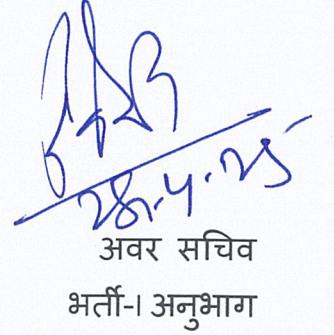 28.4.25
अवर सचिव
भर्ती-I अनुभाग